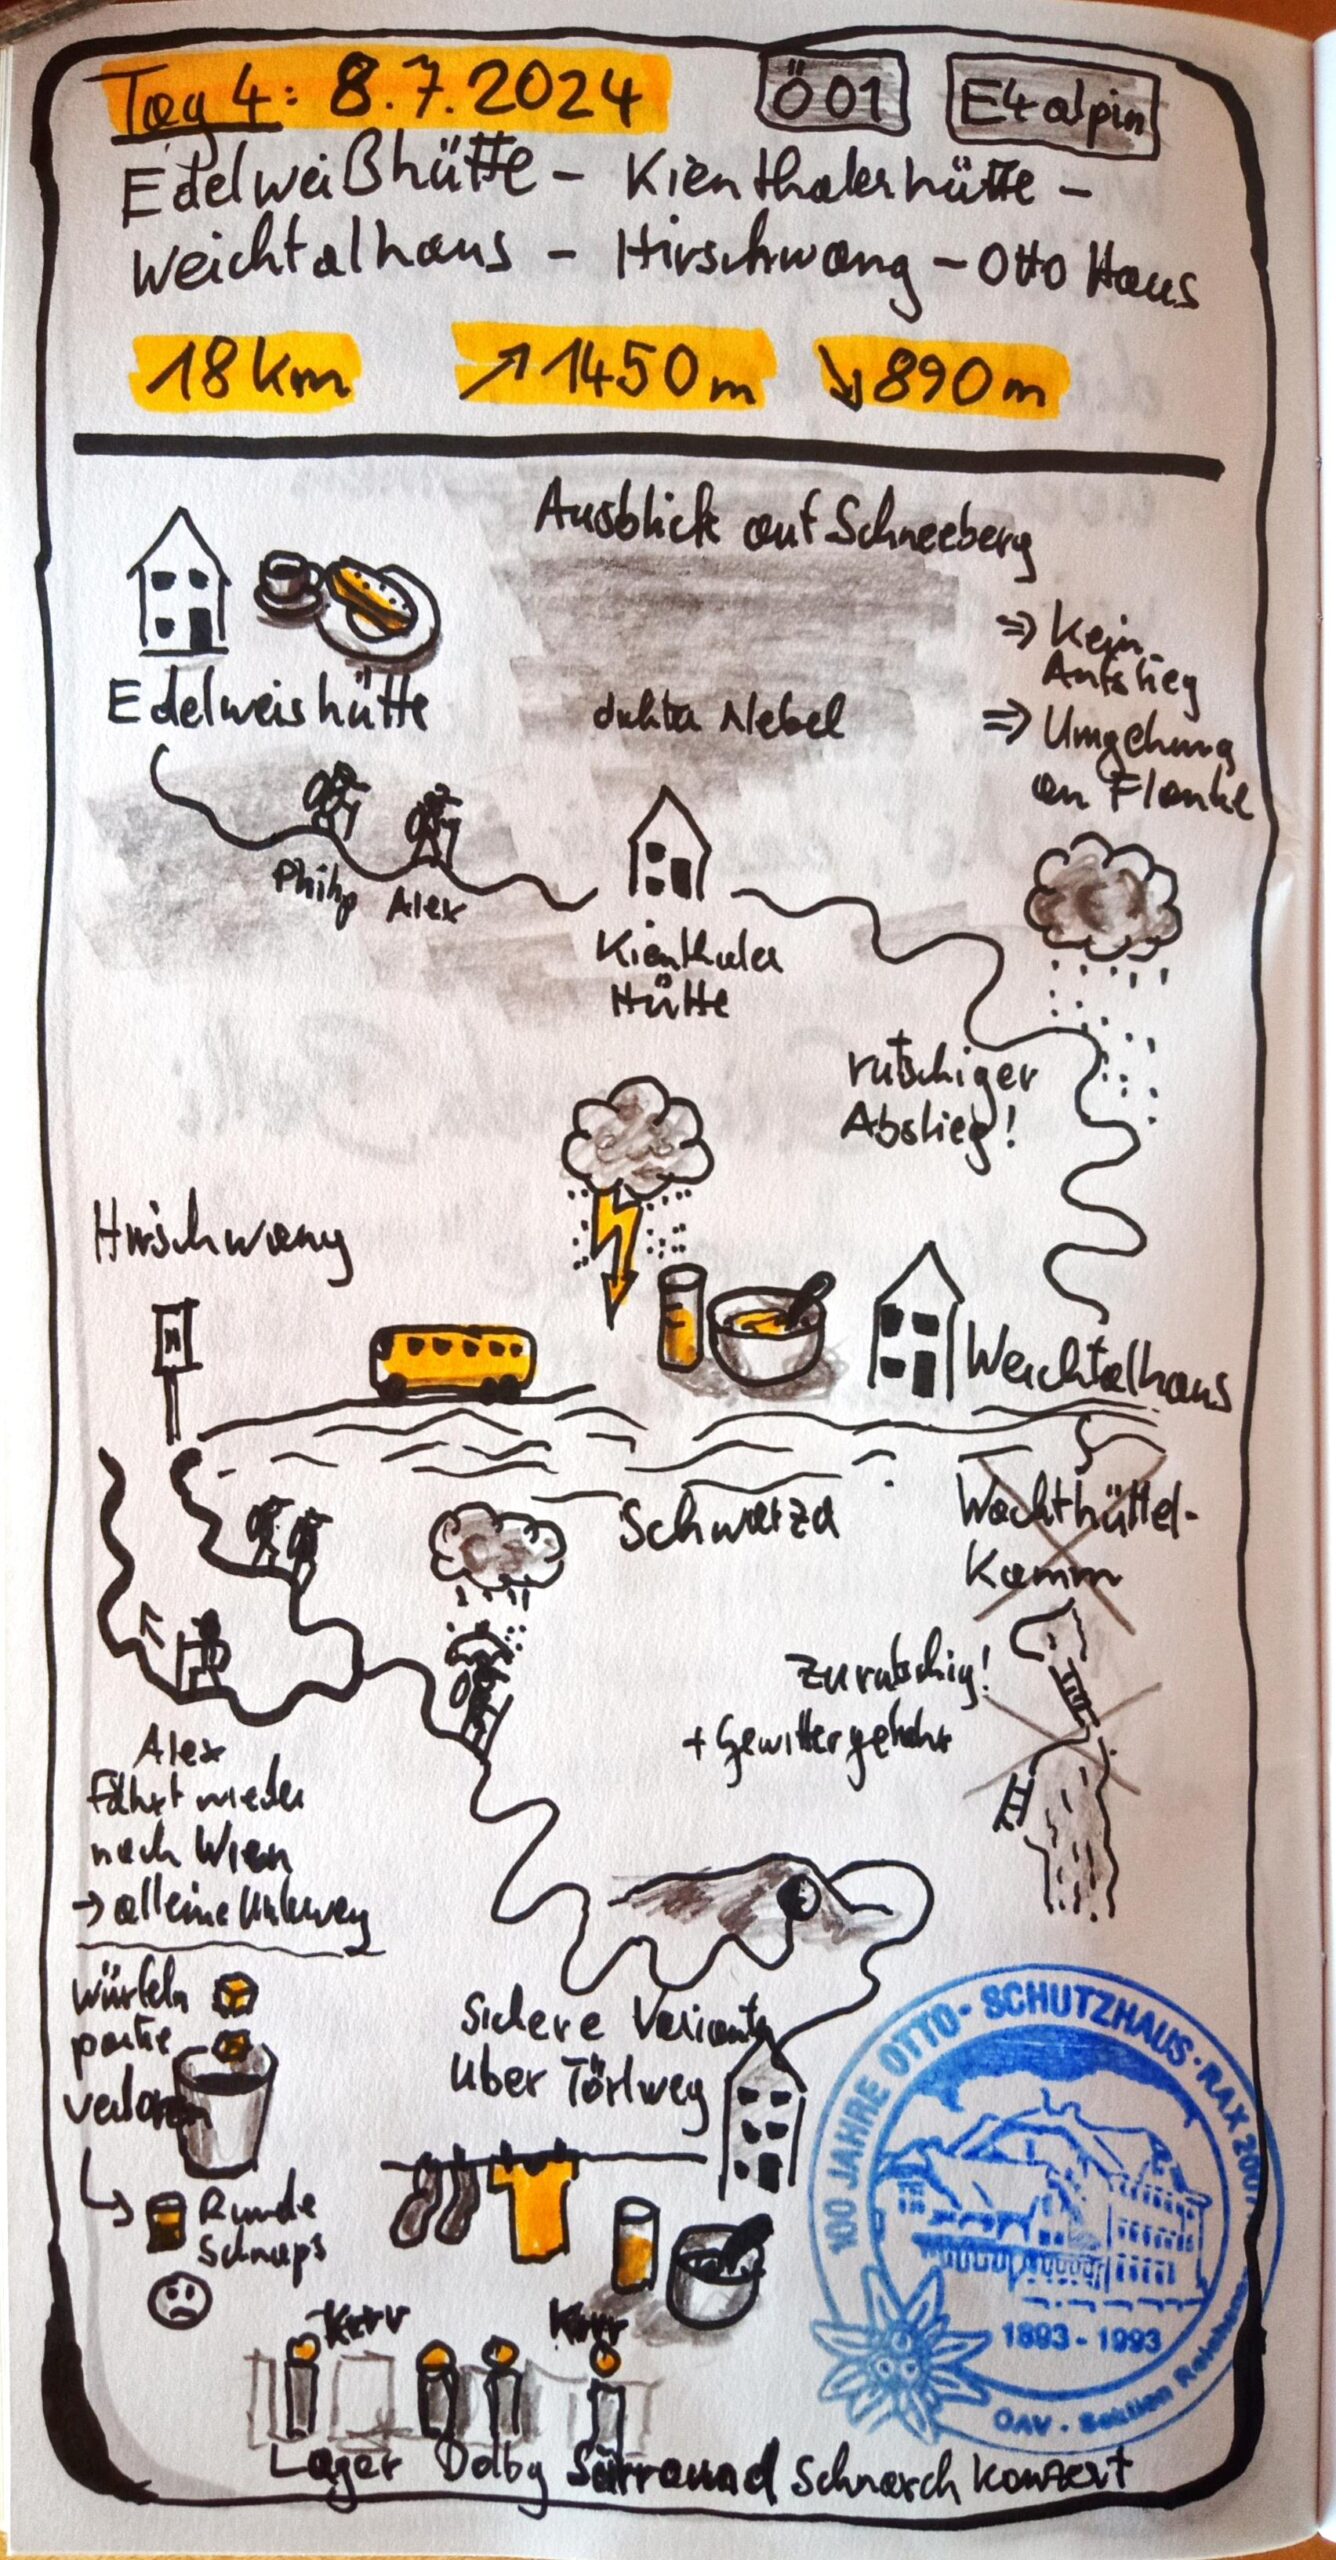 Tag 4: 8.7.2024
Ö 01
E4 alpin
Edelweißhütte - Kienthalerhütte -
Weichtalhaus - Hirschwang - Otto Haus
18 km
↗ 1450 m
↘ 890 m
Ausblick auf Schneeberg
⇒ Kein
Aufstieg
⇒ Umgehung
an Flanke
Edelweishütte
dichter Nebel
Philip
Alex
Kienthaler
Hütte
rutschiger
Abstieg!
Hirschwang
H
Weichtalhaus
Schwarza
Wachthüttel-
Kamm
zu rutschig!
+ Gewittergefahr
Alex
Fährt wieder
nach Wien
→ alleine
Würfeln
partie
verloren
Runde
Schnaps
Sichere Variante
über Törlweg
Krrr
Krrr
Lager Dolby Surround Schnarch konzert
100 JAHRE OTTO-SCHUTZHAUS · RAX 2007
1893 - 1993
ÖAV · Sektion